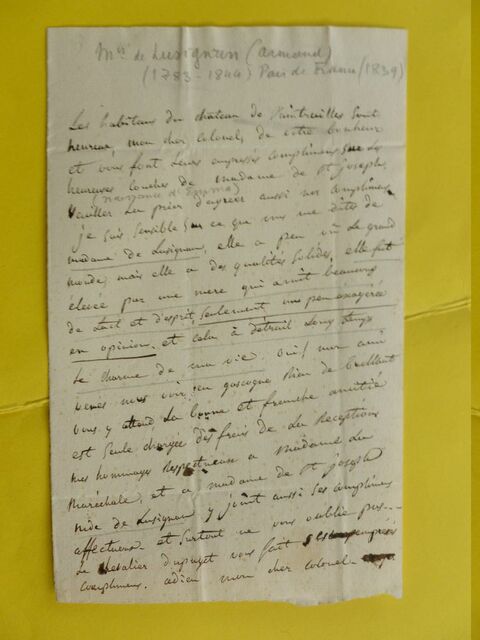 Mis de Lusignan (Armand)
(1783 - 1844) Pair de France (1839)
Les habitans du château de Xaintrailles sont
heureux, mon cher Colonel, de votre bonheur
et vous font leurs empressés complimens sur les
heureuses couches de madame de St Joseph,
(naissance d'Emma)
veuillez la prier d'agréer aussi nos complimens
je suis sensible sur ce que vous me dites de
madame de Lusignan, elle a peu vu le grand
monde, mais elle a des qualités solides, elle fut
élevée par une mere qui avoit beaucoup
de tact et d'esprit, seulement un peu exagérée
en opinion, et cela à détruit long tems
le charme de ma vie. oui! mon ami
venés nous voir en gascogne rien de brillant
vous y attend la bonne et franche amitié
est seule chargée des frais de la reception
mes hommages respectueux a Madame la
Maréchale, et a madame de St Joseph
de Lusignan y joint aussi ses complimens
affectueux et surtout ne vous oublie pas
le chevalier dupuget vous fait ses empressés
complimens. adieu mon cher colonel